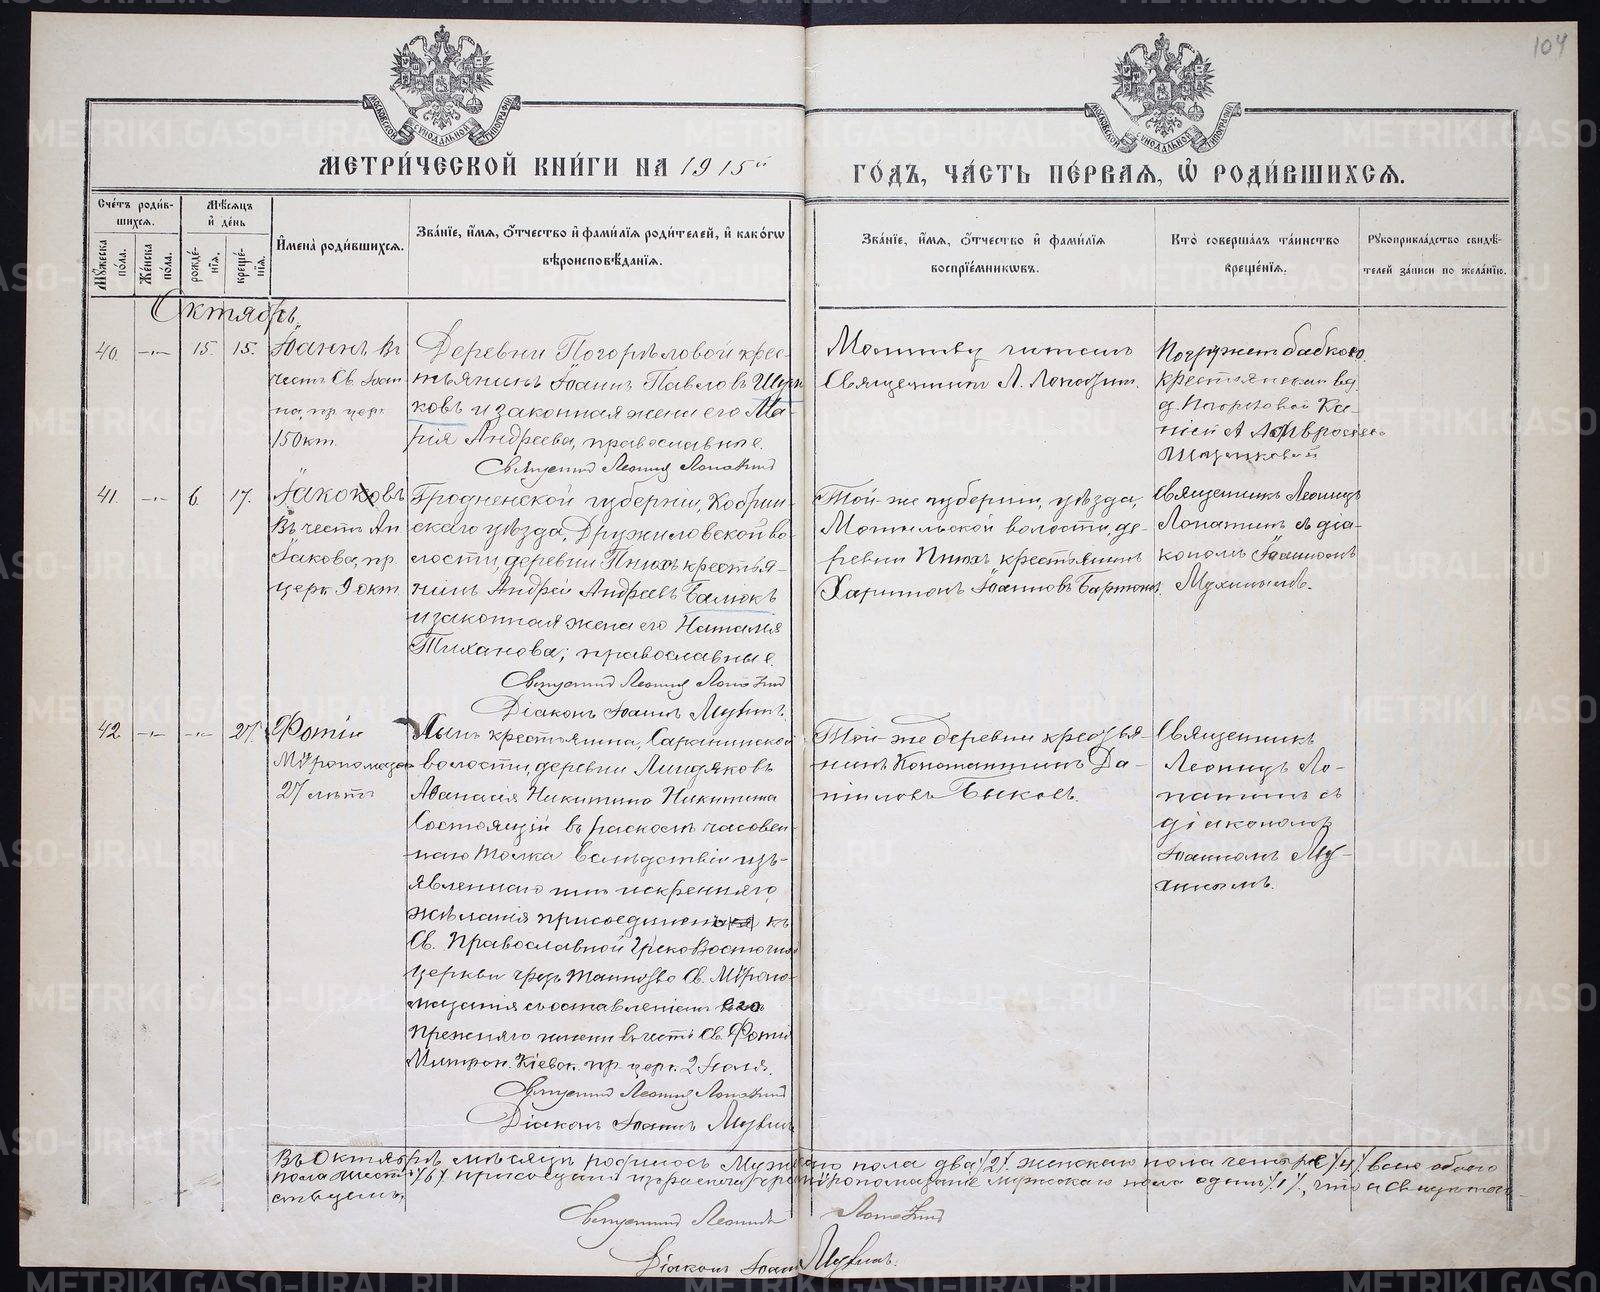 104
МОСКОВСКОЙ СѴНОДАЛЬНОЙ ТИПОГРАФІИ
МОСКОВСКОЙ СѴНОДАЛЬНОЙ ТИПОГРАФІИ
МЕТРИ́ЧЕСКОЙ КНИ́ГИ НА 1915й
ГО́ДЪ, ЧА́СТЬ ПЕ́РВАЯ, Ѡ РОДИ́ВШИХСЯ.
Сче́тъ роди́в-
шихся.
Му́жеска по́ла.
Же́нска по́ла.
Мѣ́сяцъ
и де́нь
рожде́-
нія.
креще́-
нія.
Имена̀ роди́вшихся.
Зва́нїе, и́мя, о́тчество и фами́лїя роди́телей, и како́гѡ
вѣроисповѣ́данїя.
Зва́нїе, и́мя, о́тчество и фами́лїя
воспрїе́мникѡвъ.
Кто̀ соверша́лъ та́инство
креще́нїя.
Рукоприкла́дство свидѣ́-
телей за́писи по жела́нїю.
Октябрь
40.
15.
15.
Іоаннъ въ
честь Св. Іоан
на, пр. церк.
15 окт.
Деревни Погорѣловой крес-
тьянинъ Іоаннъ Павловъ
ковъ и законная жена его Ма-
рія Андреева, православные.
Священникъ Леонидъ Лопатинъ
Молитву читалъ
Священникъ Л. Лопатин.
Погружен бабкою
41.
6.
17.
Іаковъ
Въ честь Ап.
Іакова, пр.
церк. 9 окт.
Гродненской губерніи, Кобрин-
скаго уѣзда, Дружиловской во-
лости, деревни крестья-
нинъ Андрей Андреевъ Балюкъ
и законная жена его Наталія
Тиханова; православные.
Священникъ Леонидъ Лопатинъ
Діаконъ Іоаннъ Мухинъ.
Той-же губерніи, уѣзда,
Мотыльской волости, де-
ревни крестьянинъ
Харитонъ Іоанновъ
Священникъ Леонидъ
Лопатинъ съ діа-
кономъ Іоанномъ
Мухинымъ.
42
27.
Фотій
Мѵропомазан
27 лѣтъ
Сынъ крестьянина, Саранинской
волости, деревни Линдяковъ
Аѳанасія Никитина Никитина
Состоящій въ расколѣ часовен-
наго толка вслѣдствіи изъ-
явленнаго имъ искренняго
желанія присоединенъ къ
Св. Православной Греко Восточной
церкви чрезъ таинство Св. Мѵропо-
мазанія съ оставленіемъ его
прежняго имени въ честь Св. Фотія
Митроп. Кіевск. пр. церк. 2 Іюля.
Священникъ Леонидъ Лопатинъ
Діаконъ Іоаннъ Мухинъ
Той-же деревни крестья-
нинъ Константинъ Да-
ниловъ Быковъ.
Священникъ
Леонидъ Ло-
патинъ съ
діакономъ
Іоанномъ Му-
хинымъ.
Въ Октябрѣ мѣсяцѣ родилось Мужскаго пола два /2/ женскаго пола четыре /4/ всего обоего
пола шесть /6/ присоединенъ изъ раскола чрезъ мѵропомазаніе мужскаго пола одинъ /1/, что и свидѣтель-
ствуемъ,
Священникъ Леонидъ Лопатинъ
Діаконъ Іоаннъ Мухинъ.
METRIKI.GASO-URAL.RU